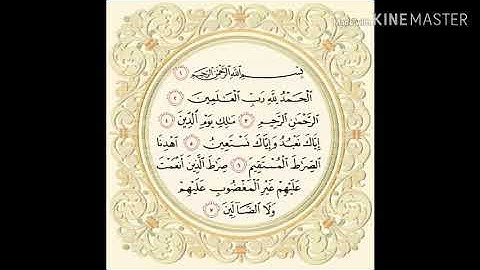 Made with KINEMASTER
بِسْمِ اللَّهِ الرَّحْمَٰنِ الرَّحِيمِ ١
الْحَمْدُ لِلَّهِ رَبِّ الْعَالَمِينَ ٢
الرَّحْمَٰنِ الرَّحِيمِ ٣ مَالِكِ يَوْمِ الدِّينِ ٤
إِيَّاكَ نَعْبُدُ وَإِيَّاكَ نَسْتَعِينُ ٥ اهْدِنَا
الصِّرَاطَ الْمُسْتَقِيمَ ٦ صِرَاطَ الَّذِينَ أَنْعَمْتَ
عَلَيْهِمْ غَيْرِ الْمَغْضُوبِ عَلَيْهِمْ
وَلَا الضَّالِّينَ ٧